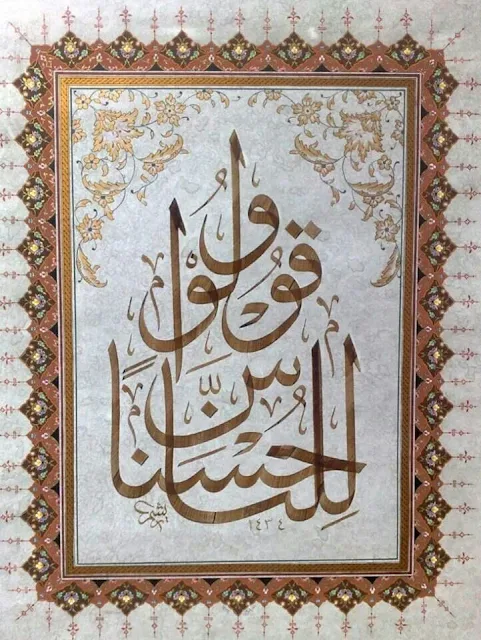 وَقُولُوا
لِلنَّاسِ حُسْنًا
١٤٣٤